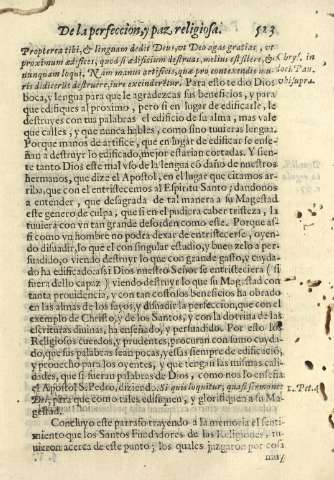 De la perfeccion, y paz, religiosa. 523
Propterea tibi, & linguam dedit Deus, ut Deo agas gratias, ut
proximum ædifices, quod si ædificium destruas, melius est silere, &
nunquam loqui. Nam manus artifices, quæ pro
ris didicerit destruere, iure excinderetur. Para esto te dio Dios
boca, y lengua para que le agradezcas sus beneficios, y para
que edifiques al proximo, pero si en lugar de edificarle, le
destruyes con tus palabras el edificio de su alma, mas vale
que calles, y que nunca hables, como sino tuuieras lengua.
Porque manos de artifice, que en lugar de edificar se enseñ
an à destruyr lo edificado, mejor estarian cortadas. Y sien-
te tanto Dios este mal vso de la lengua cõ daño de nuestros
hermanos, que dize el Apostol, en el lugar que citamos ar-
riba, que con el entristecemos al Espiritu Santo; dandonos
a entender, que desagrada de tal manera a su Magestad
este genero de culpa, que si en el pudiera caber tristeza, la
tuuiera con va tan grande desorden como este. Porque as-
si como vn hombre no podra dexar de entristecerse, oyen-
do disuadir, lo que el con singular estudio, y buen zelo a per-
suadido, o viendo destruyr lo que con grande gasto, y cuyda
do ha edificado: assi Dios nuestro Señor se entristeciera (si
fuera dello capaz) viendo destruyr lo que su Magestad con
tanta prouidencia, y con tan costosos beneficios ha obrado
en las almas de los suyos, y disuadir la perfeccion, que con el
exemplo de Christo, y de los Santos, y con la dotrina de las
escrituras diuinas, ha enseñado, y persuadido. Por esto los
Religiosos cuerdos, y prudentes, procuran con sumo cuyda-
do, que sus palabras sean pocas, y essas siempre de edificiciõ,
y prouecho para los oyentes, y que tengan las calidades,
que si fueran palabras de Dios, como nos lo enseña
el Apostol S. Pedro, diziendo. Si quis loquitur, quasi sermones
Dei, para que como tales edifiquen, y glorifiquen a su Ma-
gestad.
Concluyo este parrafo trayendo a la memoria el senti-
miento que los Santos Fundadores de las Religiones, tu-
uieron acerca de este punto; los quales juzgaron por cosa
muy
Chrys. in
ubi supra.
1. Pet. 4